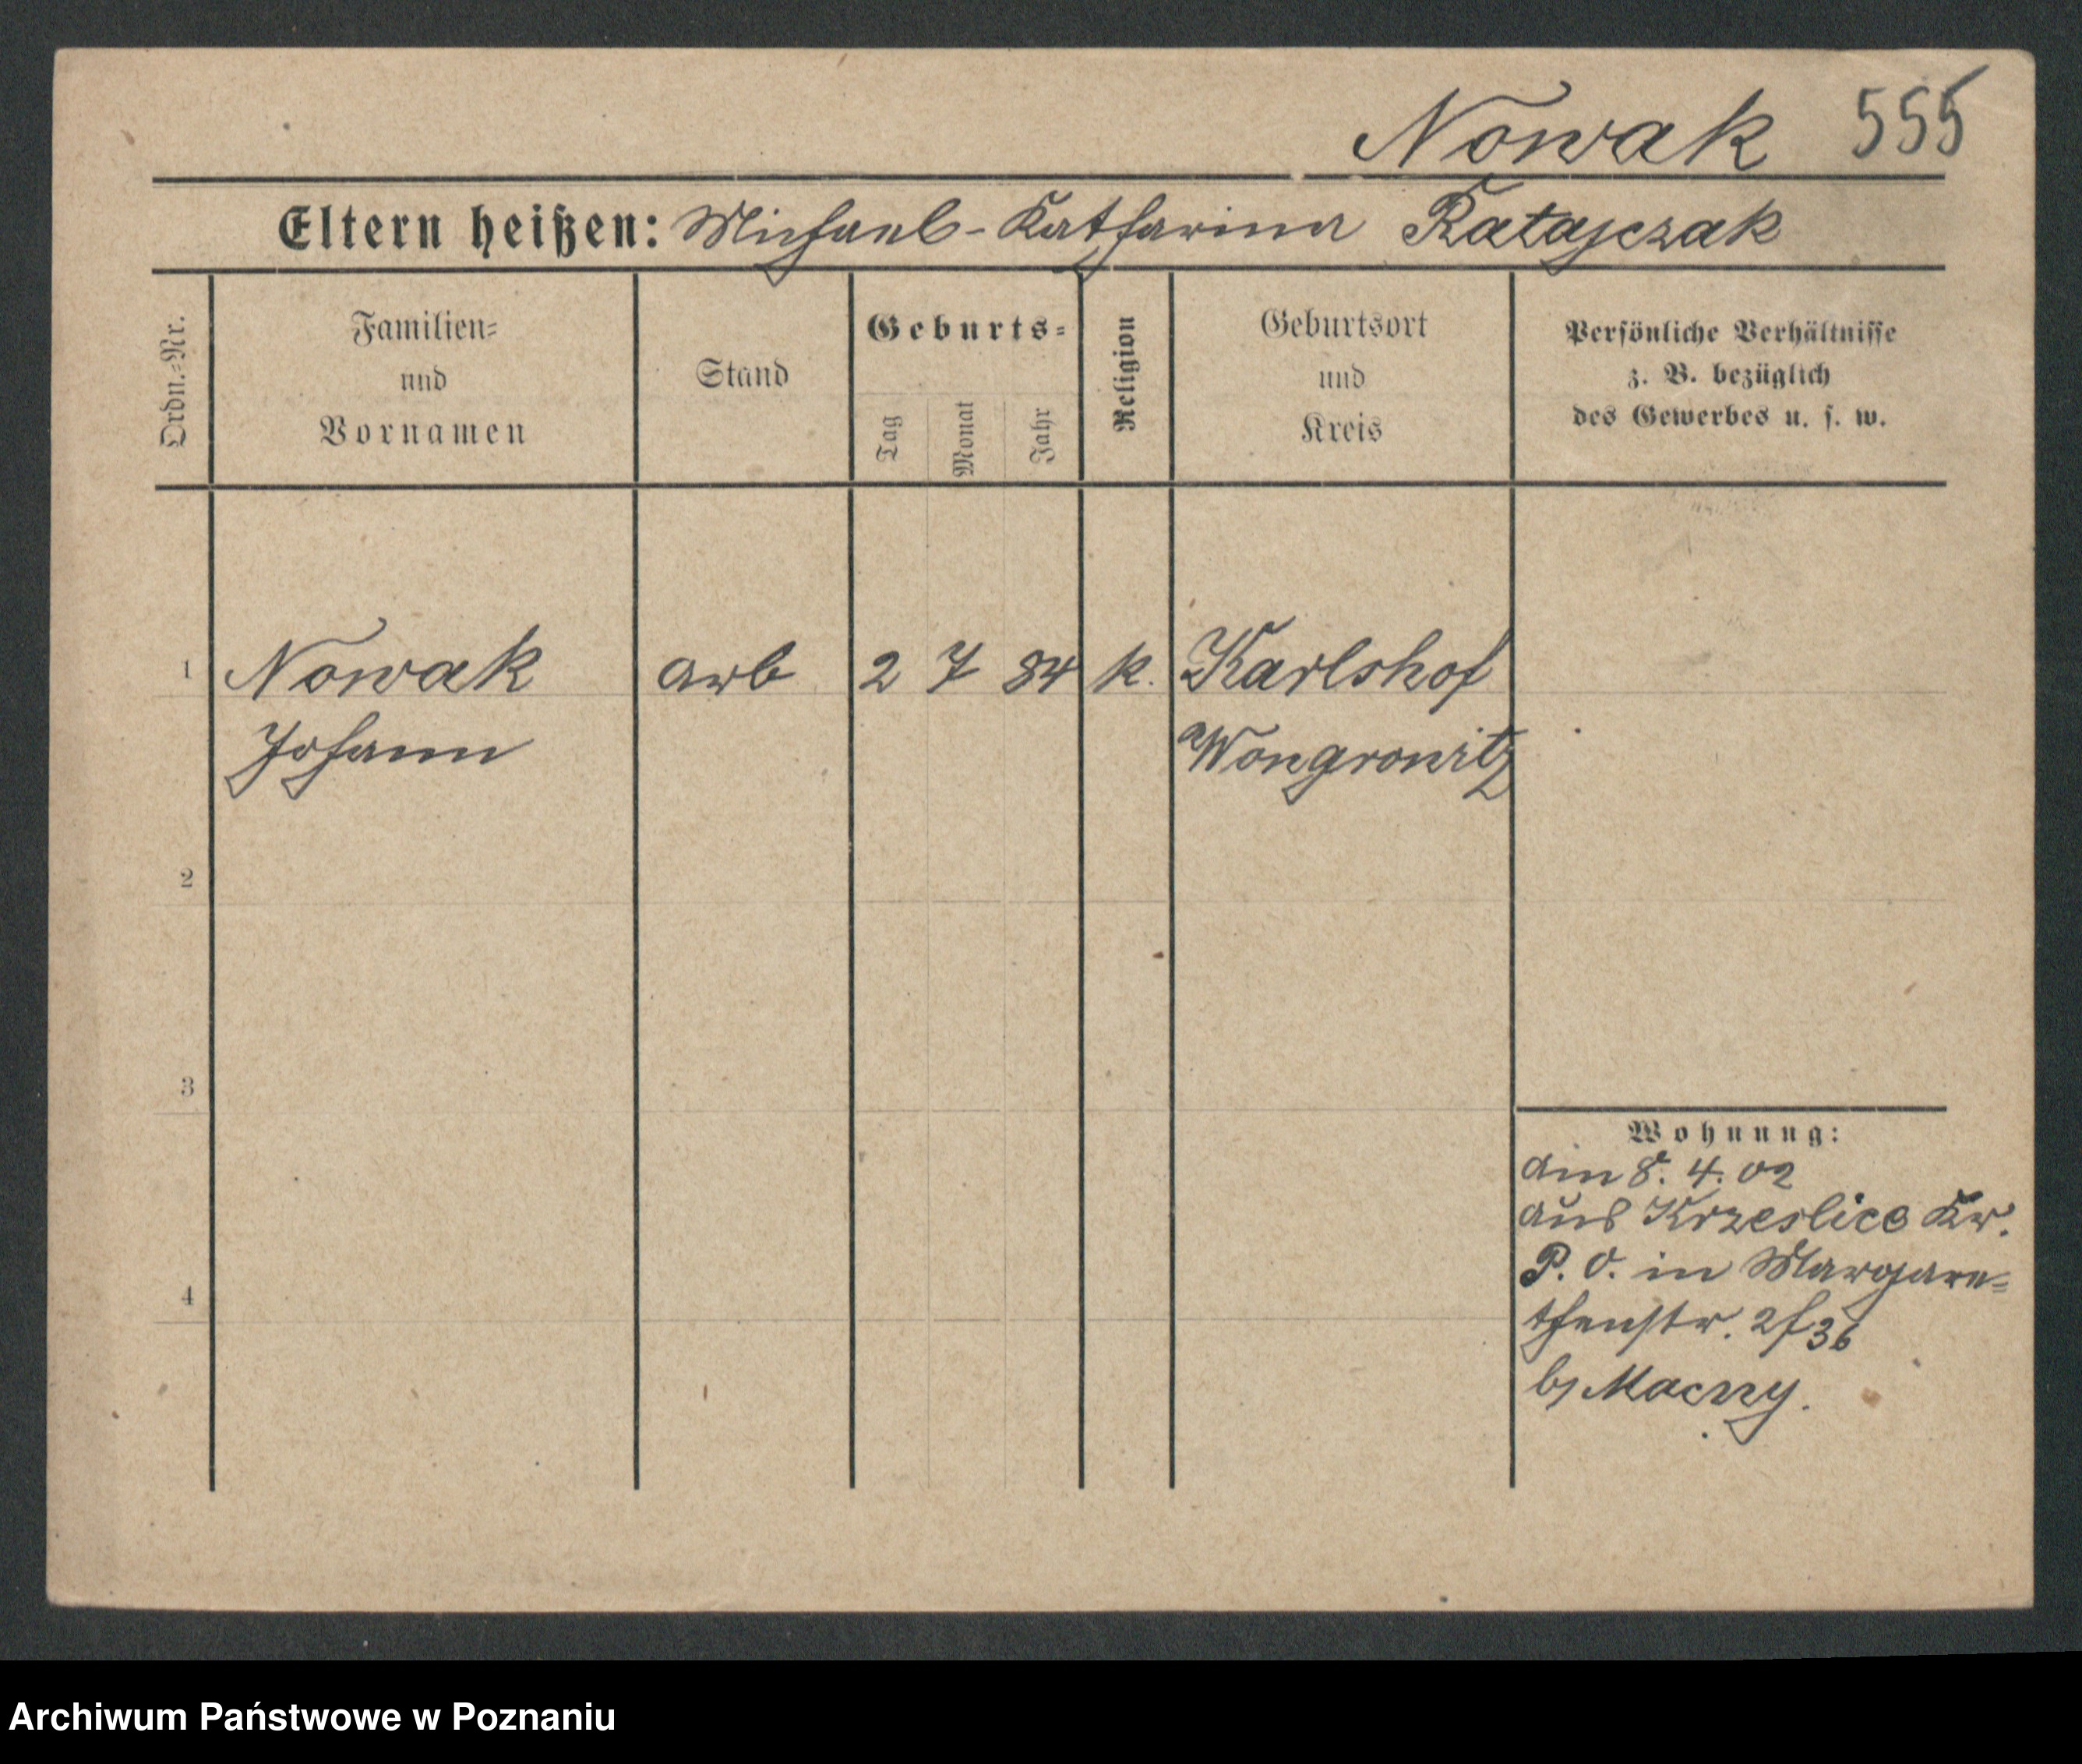 Nowak 555
Eltern heißen: Michael - Katharina Ratajczak
Ordn.=Nr.
Familien=
und
Vornamen
Stand
Geburts=
Tag
Monat
Jahr
Religion
Geburtsort
und
Kreis
Persönliche Verhältnisse
z. B. bezüglich
des Gewerbes u. s. w.
1 Nowak arb 2 7 84 k. Karlshof
Johann Wongrowitz
2
3
4
Wohnung:
am 8. 4. 02
aus Krzeslice Kr.
P. O. in Margare=
thenstr. 36
b/ Macny.
Archiwum Państwowe w Poznaniu